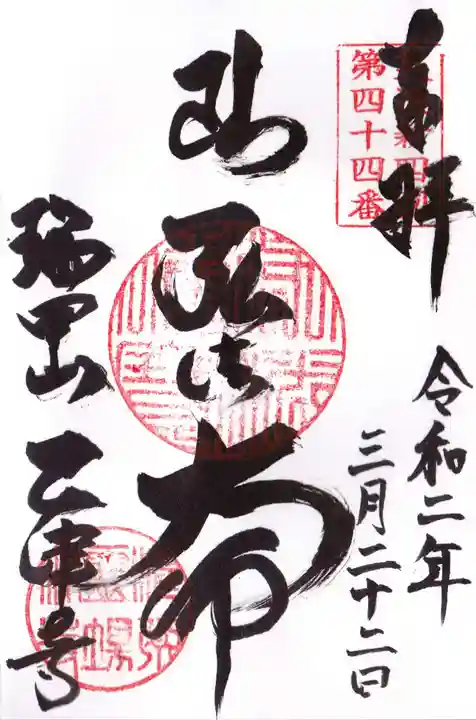 奉拝
第四十四番
令和二年
三月二十二日
弘法大師
瑞甲山 乙津寺